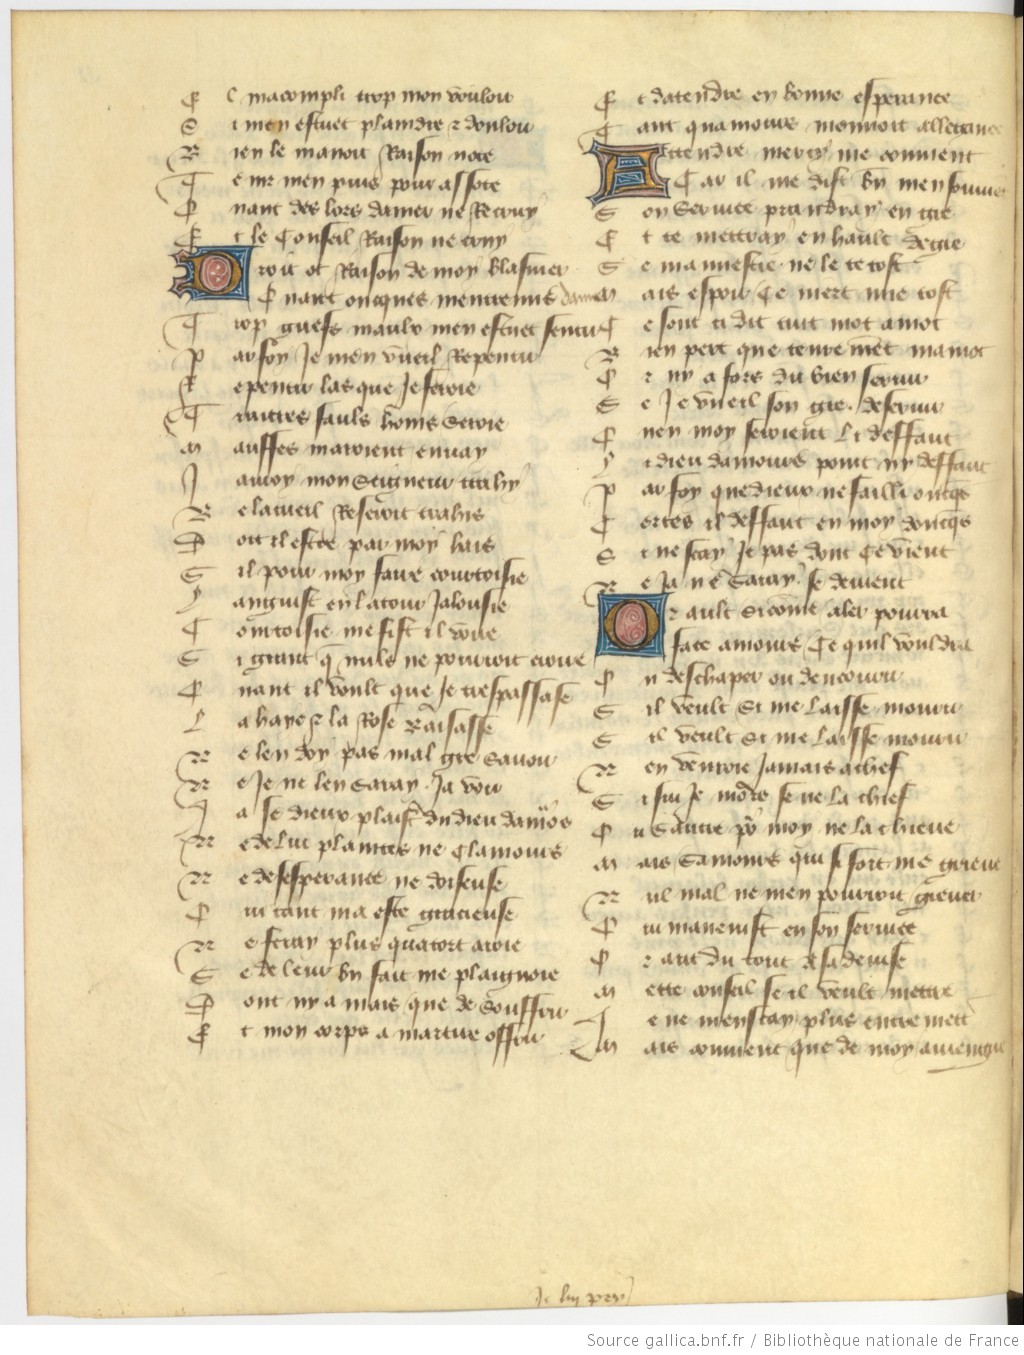 E t macompli trop mon vouloir
S i men estuet plaindre & douloir
B ien le manoit Raison note
T e me men puis pour assote
Q uant des lors damer ne Recruy
E t le Conseil Raison ne cruy
D roit ot Raison de moy blasmer
Q uant oncques mentremis damer
T rop griefs maulx men estuet sentir
P ar foy Je men vueil Repentir
R epentir las que Je feroie
T raitres faulx homs seroie
M auffes mavoient envay
J avoy mon Seigneur trahy
B elacueil Reseroit trahis
D oit il estre par moy hais
S il pour moy faire courtoisie
L anguist en la tour Jalousie
C ourtoisie me fist il voire
S i grant q̄ nuls ne pourroit croire
Q uant il voult que Je trespassasse
L a haye & la Rose baisasse
N e len doy pas mal gre Savoir
N e Je ne len Saray Ja voir
J a se dieux plaist du dieu damors
N e de luy plaintes ne Clamours
N e desesperance ne doiseuse
Q ui tant ma este gracieuse
N e feray plus quatort aroie
S e de leur bn fait me plaignoie
D ont ny a mais que de Souffrir
E t mon corps a martire offrir
E t datendre en bonne esperance
T ant quamours menvoit allegance
A ttendre mercy me convient
C ar il me dist bn men souvient
S on Service prandray en gre
E t te mettray en hault degre
S e mauuestie ne le te tost
M ais espoir Ce niert mie tost
C e sont si dit tuit mot a mot
B ien pert que tenremēt mamot
O r ny a fors du bien servir
S e Je vueil son gre deservir
Q uen moy seroient li deffaut
Y i dieu damours point ny deffaut
P ar foy que dieux ne failli oncqs
C ertes il deffaut en moy doncqs
S i ne scay Je pas dont Ce vient
N e Ja ne Saray se devient
O r ault Si comē aler pourra
F ace amours Ce quil vouldra
O u deschaper ou dencourir
S il veult Si me laisse mourir
S il veult Si me laisse mourir
N en venroie Jamais a chief
S i sui Je mors se ne lachief
O u Sautre po᷑ moy ne lachieve
M ais Samours qui si fort me grieve
N ul mal ne men pourroit grever
Q ui manenist en son service
O r ault du tout a sa devise
M ette conseil se il veult mettre
J e ne men scay plus entremett
M ais comment que de moy aviengne
Je luy pry